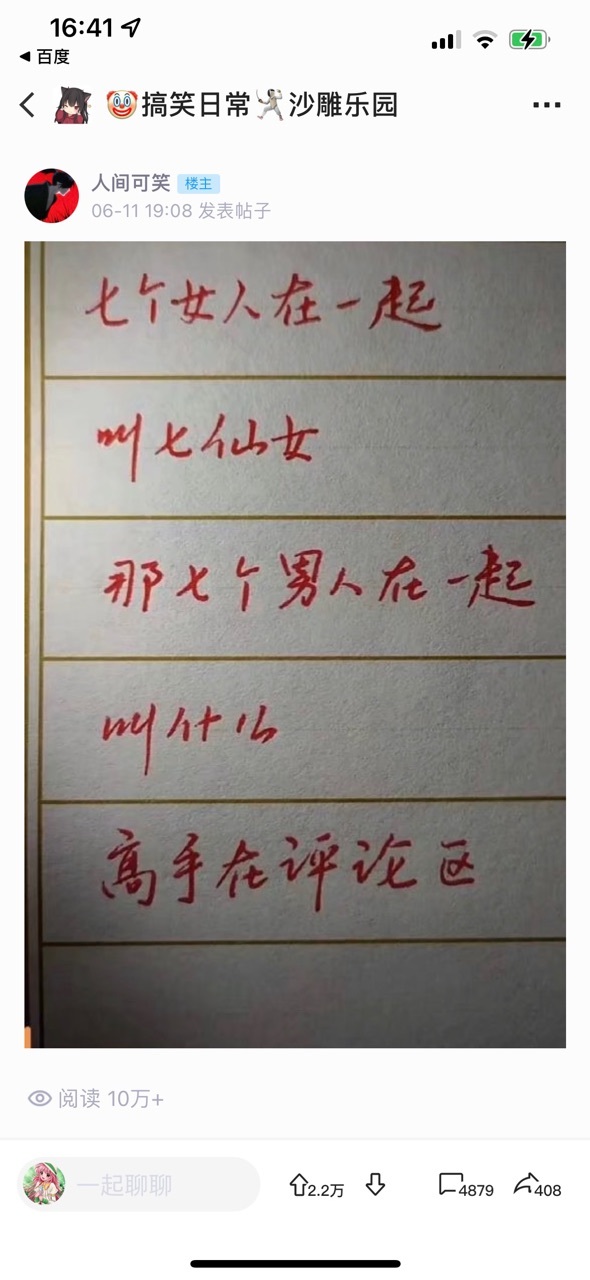 16:41
百度
搞笑日常 沙雕乐园
人间可笑 楼主
06-11 19:08 发表帖子
七个女人在一起
叫七仙女
那七个男人在一起
叫什么
高手在评论区
阅读 10万+
一起聊聊 2.2万 4879 408